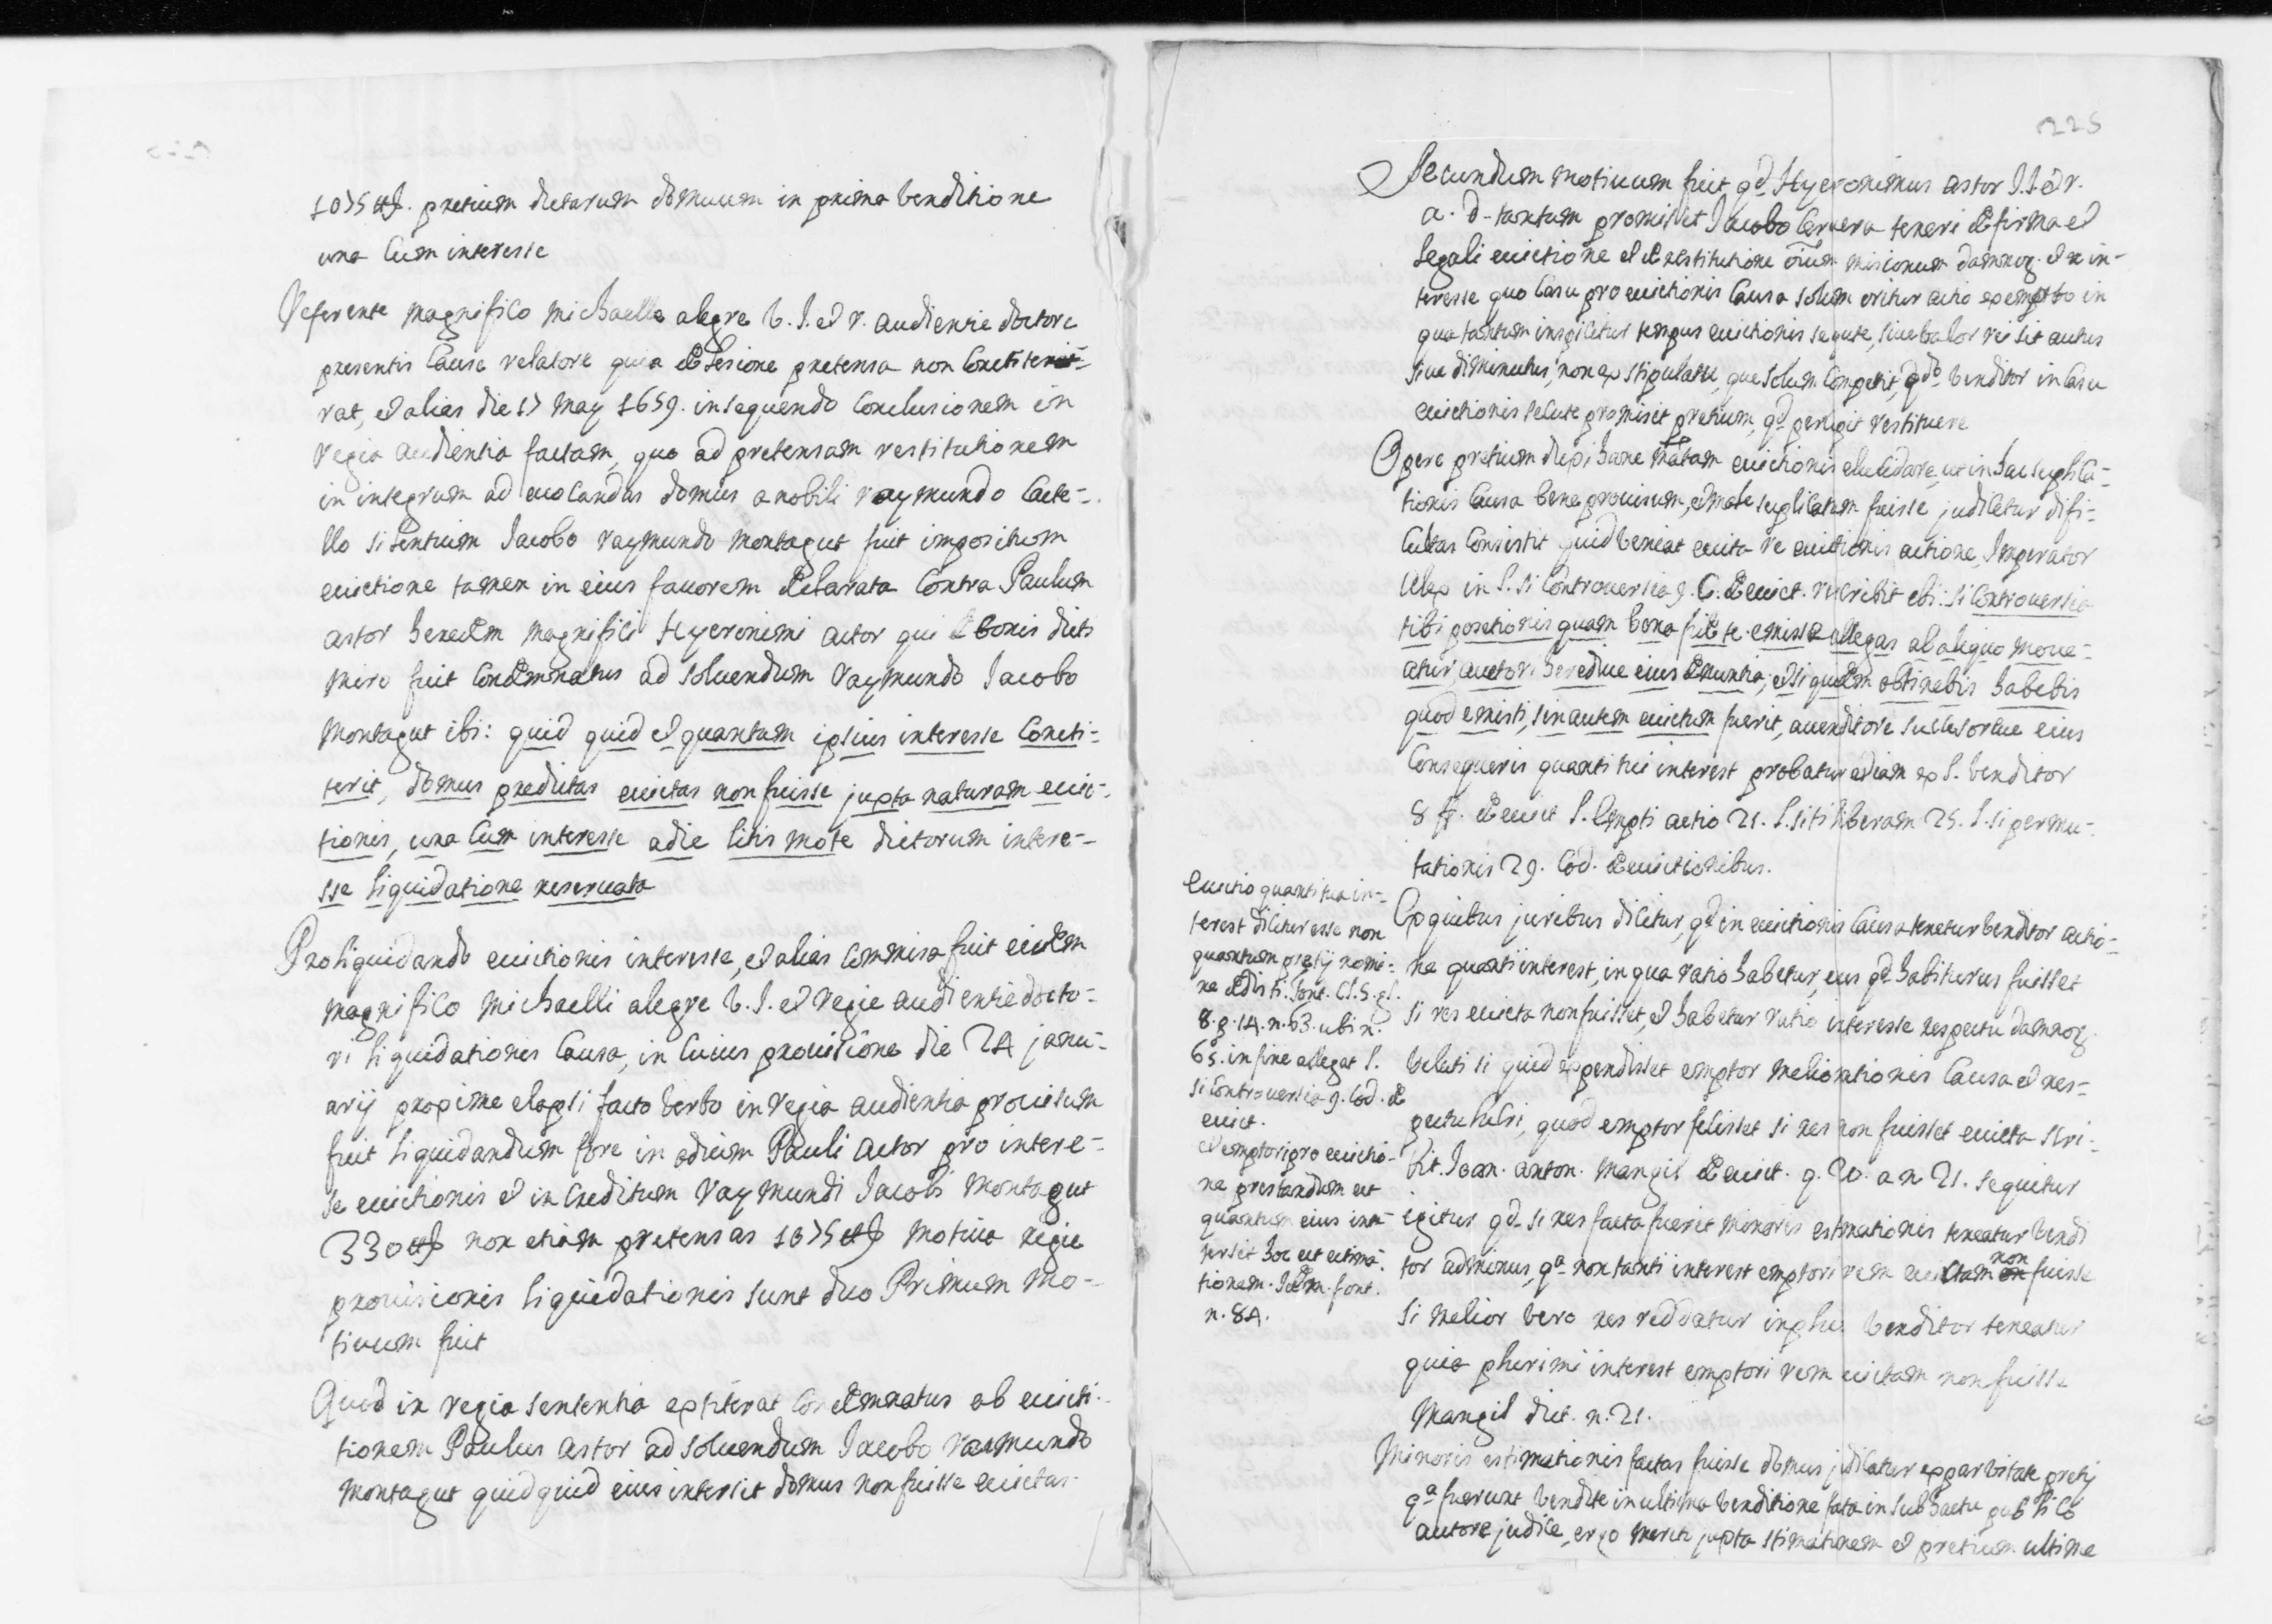 1075 ₶. pretium dictarum domuum in prima venditione
una cum interesse
Referente magnifico Michaelle alegre V. J. et r. audientie doctore
presentis cause relatore quia de lesione pretensa non constite-
rat, et alias die 17 may 1659. insequendo conclusionem in
regia audientia factam, quo ad pretensam restitutionem
in integrum ad evocandas domus a nobili raymundo caste-
llo silentium Jacobo raymundo montagut fuit impositum
evictione tamen in eius favorem declarata contra Paulum
astor heredem magnifici Hyeronimi astor qui de bonis dicti
fuit condemnatus ad solvendum raymundo Jacobo
montagut ibi: quid quid et quantum ipsius interesse consti-
terit, domus predictas evictas non fuisse juxta naturam evic-
tionis, una cum interesse a die litis mote dictorum intere-
sse liquidatione reservata
Pro liquidando evictionis interesse, et alias commisa fuit eidem
magnifico Michaelli alegre V. J. et regie audientie docto-
ri liquidationis causa, in cuius provisione die 24 janu-
arij proxime elapsi facto verbo in regia audientia provisum
fuit liquidandum fore in odium Pauli astor pro intere-
se evictionis et in creditum raymundi Jacobi montagut
330 ₶ non etiam pretensas 1075 ₶ motiva regie
provisionis liquidationis sunt duo Primum mo-
tivum fuit
Quod in regia sententia extiterat condemnatus ob evicti-
tionem Paulus astor ad solvendum Jacobo raimundo
montagut quidquid eius intersit domus non fuisse evictas
225
Secundum motivum fuit qd. Hyeronimus astor
a. d. tantum promisset Jacobo Cervera teneri de firma et
legali evictione et de restitutione oium misionum damnor. et in-
teresse quo casu pro evictionis causa solum oritur actio ex empto in
qua tantum inspicitur tempus evictionis sequte, sive valor rei sit autus
sive diminutus, non ex stipulatu, que solum competit, qdo. venditor in casu
evictionis secute promisit pretium, qd. percepit restituere
Opere pretium duxi hanc matam evictionis elucidare, ut in hac suplica-
tionis causa bene provisum, et male suplicatum fuisse judicetur difi-
cultas consistit quid veniat evicta re evictionis actione, Imperator
Alex in l. si controversia 9. C. de evict. rescribit ibi: si controversia
tibi posetionis quam bona fide te emisse allegas ab aliquo move-
atur, auctori heredive eius denuntia, et si quidem obtinebis habebis
quod emisti, sin autem evictum fuerit, a venditore succesorive eius
consequeris quanti tui interest probatur etiam ex l. venditor
8 ff. de evict l. empti actio 21. l. si ti liberam 25. l. si permu-
tationis 29. Cod. de evictionibus.
Ex quibus juribus dicitur, qd. in evictionis causa tenetur venditor actio-
ne quanti interest, in qua ratio habetur, eius qd. habiturus fuisset
si res evicta non fuisset, et habetur ratio interesse respectu damnor.
veluti si quid expendisset emptor meliorationis causa et res-
pectu lucri, quod emptor fecisset si res non fuisset evicta scri-
bit. Joan. anton. Mangil de evict. q. 20. a n 21. sequitur
igitur qd. si res facta fuerit minoris estimationis teneatur vendi
tor ad minus, qa. non tanti interest emptori rem evictam non fuisse
si melior vero res reddatur in plus venditor teneatur
quia plurimi interest emptori rem evictam non fuisse
Mangil dict. n. 21.
Minoris estimationis factas fuisse domus judicatur ex parvitate pretij
qa. fuerunt vendite in ultima venditione fata in subhastu publico
autore judice, ergo merito juxta stimationem et pretium ultime
Evictio quanti tua in-
terest dicitur esse non
quantum pretij nomi-
ne dedisti. font. cl. 5. gl.
8. p. 14. n. 63. ubi n.
65. in fine allegat l.
si controversia 9. Cod. de
evict.
et emptori pro evictio-
ne prestandum est
quantum eius inte-
rsit hoc est estima-
tionem. Idem font.
n. 84.